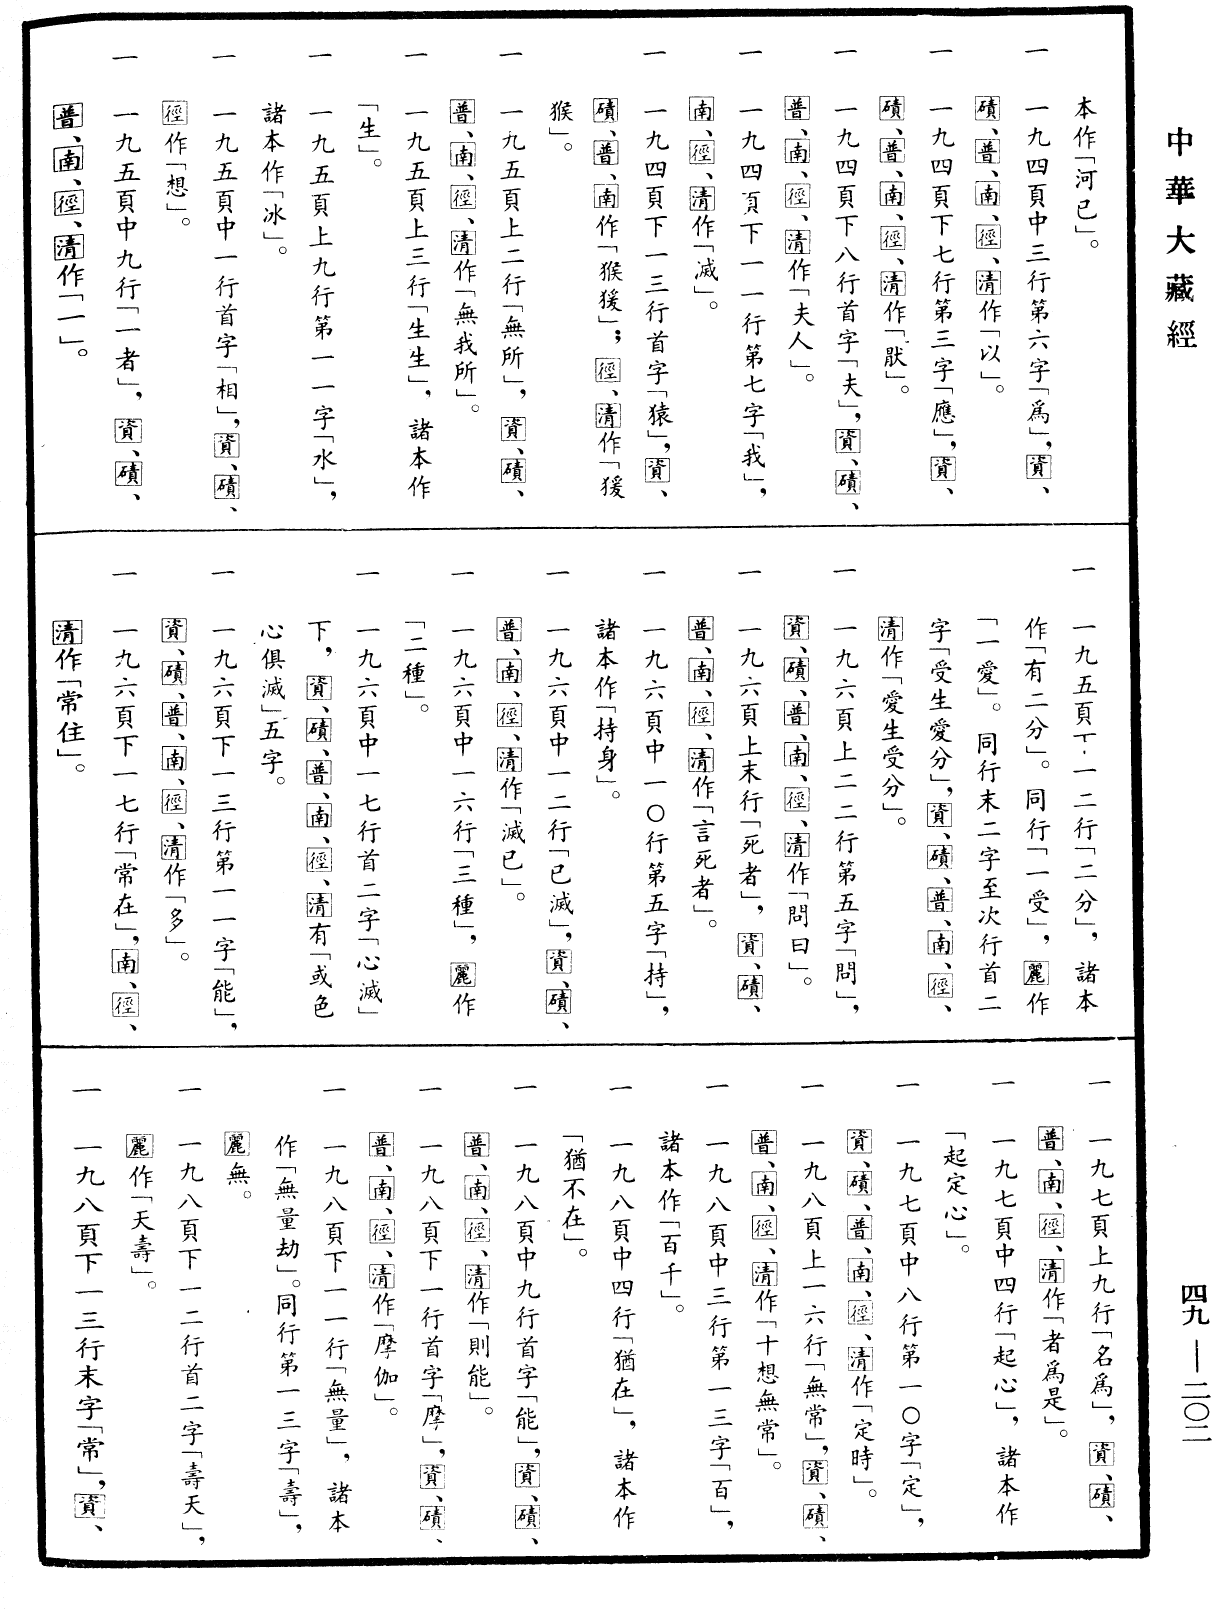 中華大藏經
本作「河已」。
一　一九四頁中三行第六字「爲」，資、
磧、普、南、徑、清作「以」。
一　一九四頁下七行第三字「應」，資、
磧、普、南、徑、清作「猒」。
一　一九四頁下八行首字「夫」，資、磧、
普、南、徑、清作「夫人」。
一　一九四頁下一一行第七字「我」，
南、徑、清作「滅」。
一　一九四頁下一三行首字「猿」，資、
磧、普、南作「猴猨」；徑、清作「猨
猴」。
一　一九五頁上二行「無所」，資、磧、
普、南、徑、清作「無我所」。
一　一九五頁上三行「生生」，諸本作
「生」。
一　一九五頁上九行第一一字「水」，
諸本作「冰」。
一　一九五頁中一行首字「相」，資、磧、
徑作「想」。
一　一九五頁中九行「一者」，資、磧、
普、南、徑、清作「一」。
一　一九五頁下一二行「二分」，諸本
作「有二分」。同行「一受」，麗作
「一愛」。同行末二字至次行首二
字「受生愛分」，資、磧、普、南、徑、
清作「愛生受分」。
一　一九六頁上二二行第五字「問」，
資、磧、普、南、徑、清作「問曰」。
一　一九六頁上末行「死者」，資、磧、
普、南、徑、清作「言死者」。
一　一九六頁中一〇行第五字「持」，
諸本作「持身」。
一　一九六頁中一二行「已滅」，資、磧、
普、南、徑、清作「滅已」。
一　一九六頁中一六行「三種」，麗作
「二種」。
一　一九六頁中一七行首二字「心滅」
下，資、磧、普、南、徑、清有「或色
心俱滅」五字。
一　一九六頁下一三行第一一字「能」，
資、磧、普、南、徑、清作「多」。
一　一九六頁下一七行「常在」，南、徑、
清作「常住」。
一　一九七頁上九行「名爲」，資、磧、
普、南、徑、清作「者爲是」。
一　一九七頁中四行「起心」，諸本作
「起定心」。
一　一九七頁中八行第一〇字「定」，
資、磧、普、南、徑、清作「定時」。
一　一九八頁上一六行「無常」，資、磧、
普、南、徑、清作「十想無常」。
一　一九八頁中三行第一三字「百」，
諸本作「百千」。
一　一九八頁中四行「猶在」，諸本作
「猶不在」。
一　一九八頁中九行首字「能」，資、磧、
普、南、徑、清作「則能」。
一　一九八頁下一行首字「摩」，資、磧、
普、南、徑、清作「摩伽」。
一　一九八頁下一一行「無量」，諸本
作「無量劫」。同行第一三字「壽」，
麗無。
一　一九八頁下一二行首二字「壽天」，
麗作「天壽」。
一　一九八頁下一三行末字「常」，資、
四九—二〇二